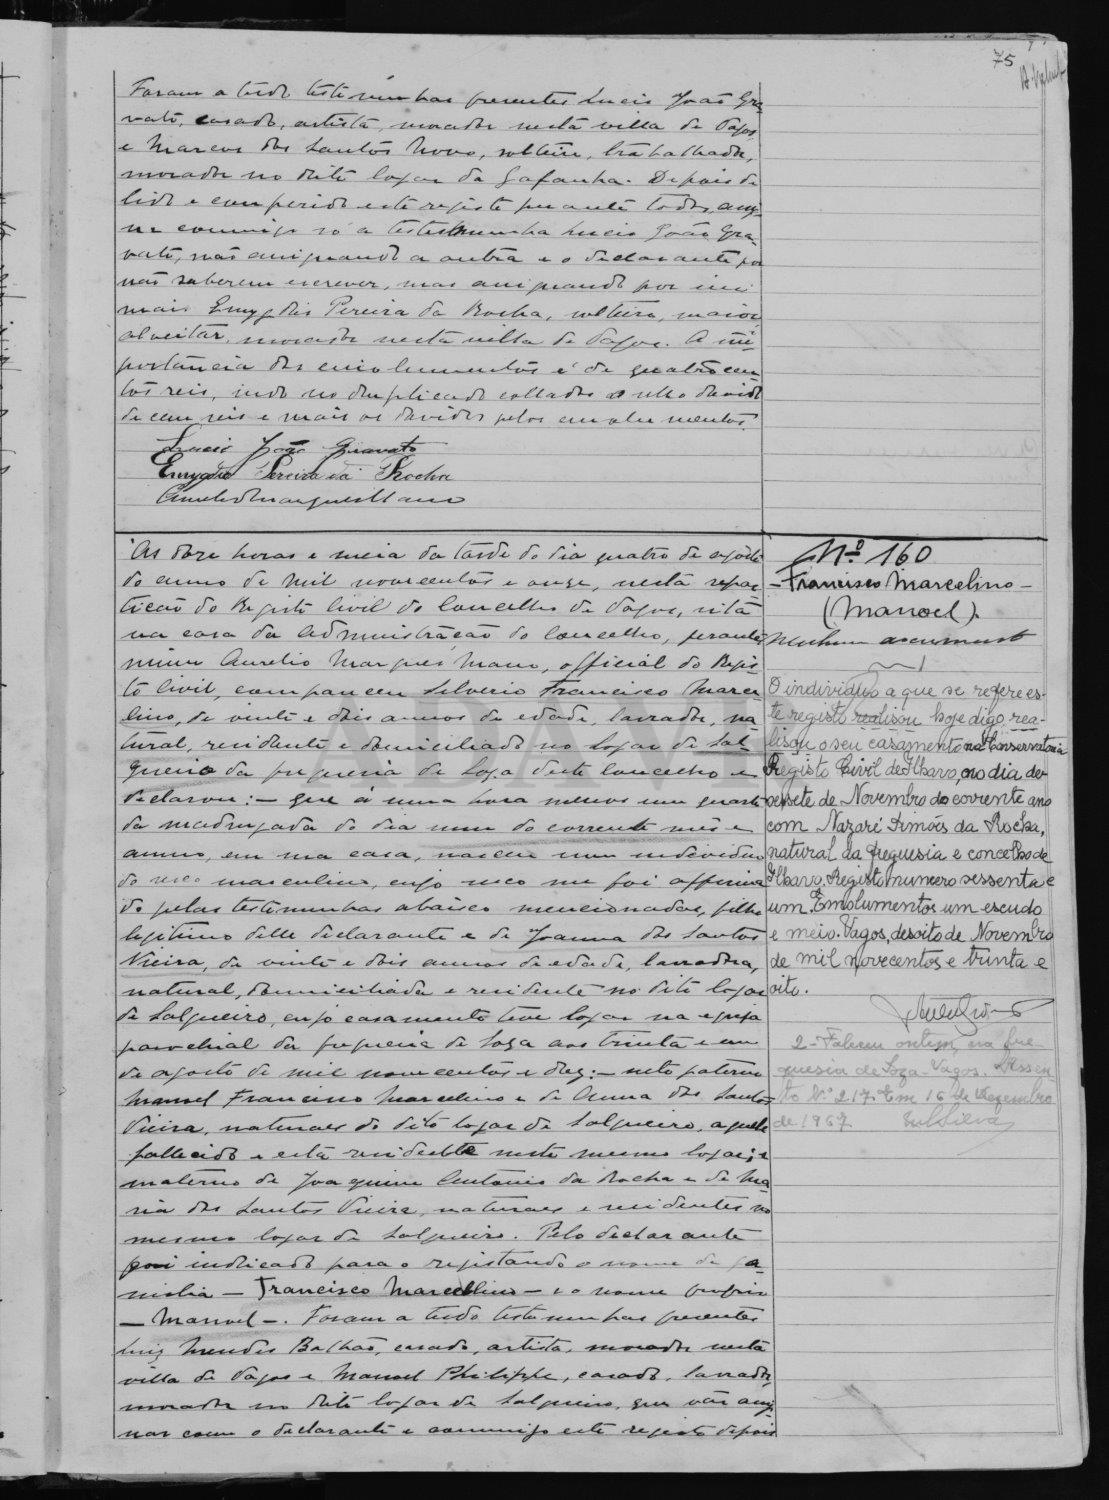 75
Foram a tudo testemunhas presentes Lucio João Gra-
vato, casado, artista, morador nesta villa de Vagos,
e Marcos dos Santos Novo, solteiro, trabalhador,
morador no dito logar da Gafanha. Depois de
lido e conferido este registo perante todos, assi-
na commigo só a testemunha Lucio João Gra-
vato, não assignando a outra e o declarante por
não saberem escrever, mas assignando por
mais Emygdio Pereira da Rocha, solteiro, maior,
alveitar, morador nesta villa de Vagos. A im-
portancia dos emolumentos é de quatrocen-
tos reis, indo no duplicado collados o sello devido
de cem reis e mais os devidos pelos emolumentos.
Lucio João Gravato
Emygdio Pereira da Rocha
Aurelio Marques Mano
As doze horas e meia da tarde do dia quatro de agosto
do anno de mil novecentos e onze, nesta repar-
tição do Registo Civil do Concelho de Vagos, sita
na casa da Administração do Concelho, perante
mim Aurelio Marques Mano, official do Regis-
to civil, compareceu Silverio Francisco Marce-
lino, de vinte e dois annos de edade, lavrador, na-
tural, residente e domiciliado no logar de Sal-
gueiro da freguesia de Soza deste concelho e
declarou:— que á uma hora menos um quarto
da madrugada do dia um do corrente mês e
anno, em sua casa, nasceu um individuo
do sexo masculino, cujo sexo me foi affirma-
do pelas testemunhas abaixo mencionadas, filho
legitimo delle declarante e de Joanna dos Santos
Vieira, de vinte e dois annos de edade, lavradora,
natural, domiciliada e residente no dito logar
de Salgueiro, cujo casamento teve logar na egreja
parochial da freguesia de Soza aos trinta e um
de agosto de mil novecentos e dez:— neto paterno
Manuel Francisco Marcelino e de Anna dos Santos
Vieira, naturaes do dito logar de Salgueiro, aquelle
fallecido e esta residente neste mesmo logar; e
materno de Joaquim Antonio da Rocha e de Ma-
ria dos Santos Vieira, naturaes e residentes no
mesmo logar de Salgueiro. Pelo declarante
foi indicado para o registando o nome de fa-
milia — Francisco Marcellino — e o nome proprio
— Manoel —. Foram a tudo testemunhas presentes
Luiz Mendes Balhão, casado, artista, morador nesta
villa de Vagos e Manuel Philippe, casado, lavrador,
morador no dito logar de Salgueiro, que vão assig-
nar com o declarante e commigo este registo depois
Nº 160
— Francisco Marcelino —
(Manoel).
Nenhum documento
O individuo a que se refere es-
te registo realisou hoje digo, rea-
lisou o seu casamento na Conservatoria
Registo Civil de Ilhavo, no dia de-
sessete de Novembro do corrente ano
com Nazaré Simões da Rocha,
natural da freguesia e concelho de
Ilhavo. Registo numero sessenta e
um. Emolumentos um escudo
e meio. Vagos, desoito de Novembro
de mil novecentos e trinta e
oito.
2- Faleceu ontem, na fre-
guesia de Soza-Vagos. Assen-
to Nº 217. Em 16 de Dezembro
de 1967
ADAVR